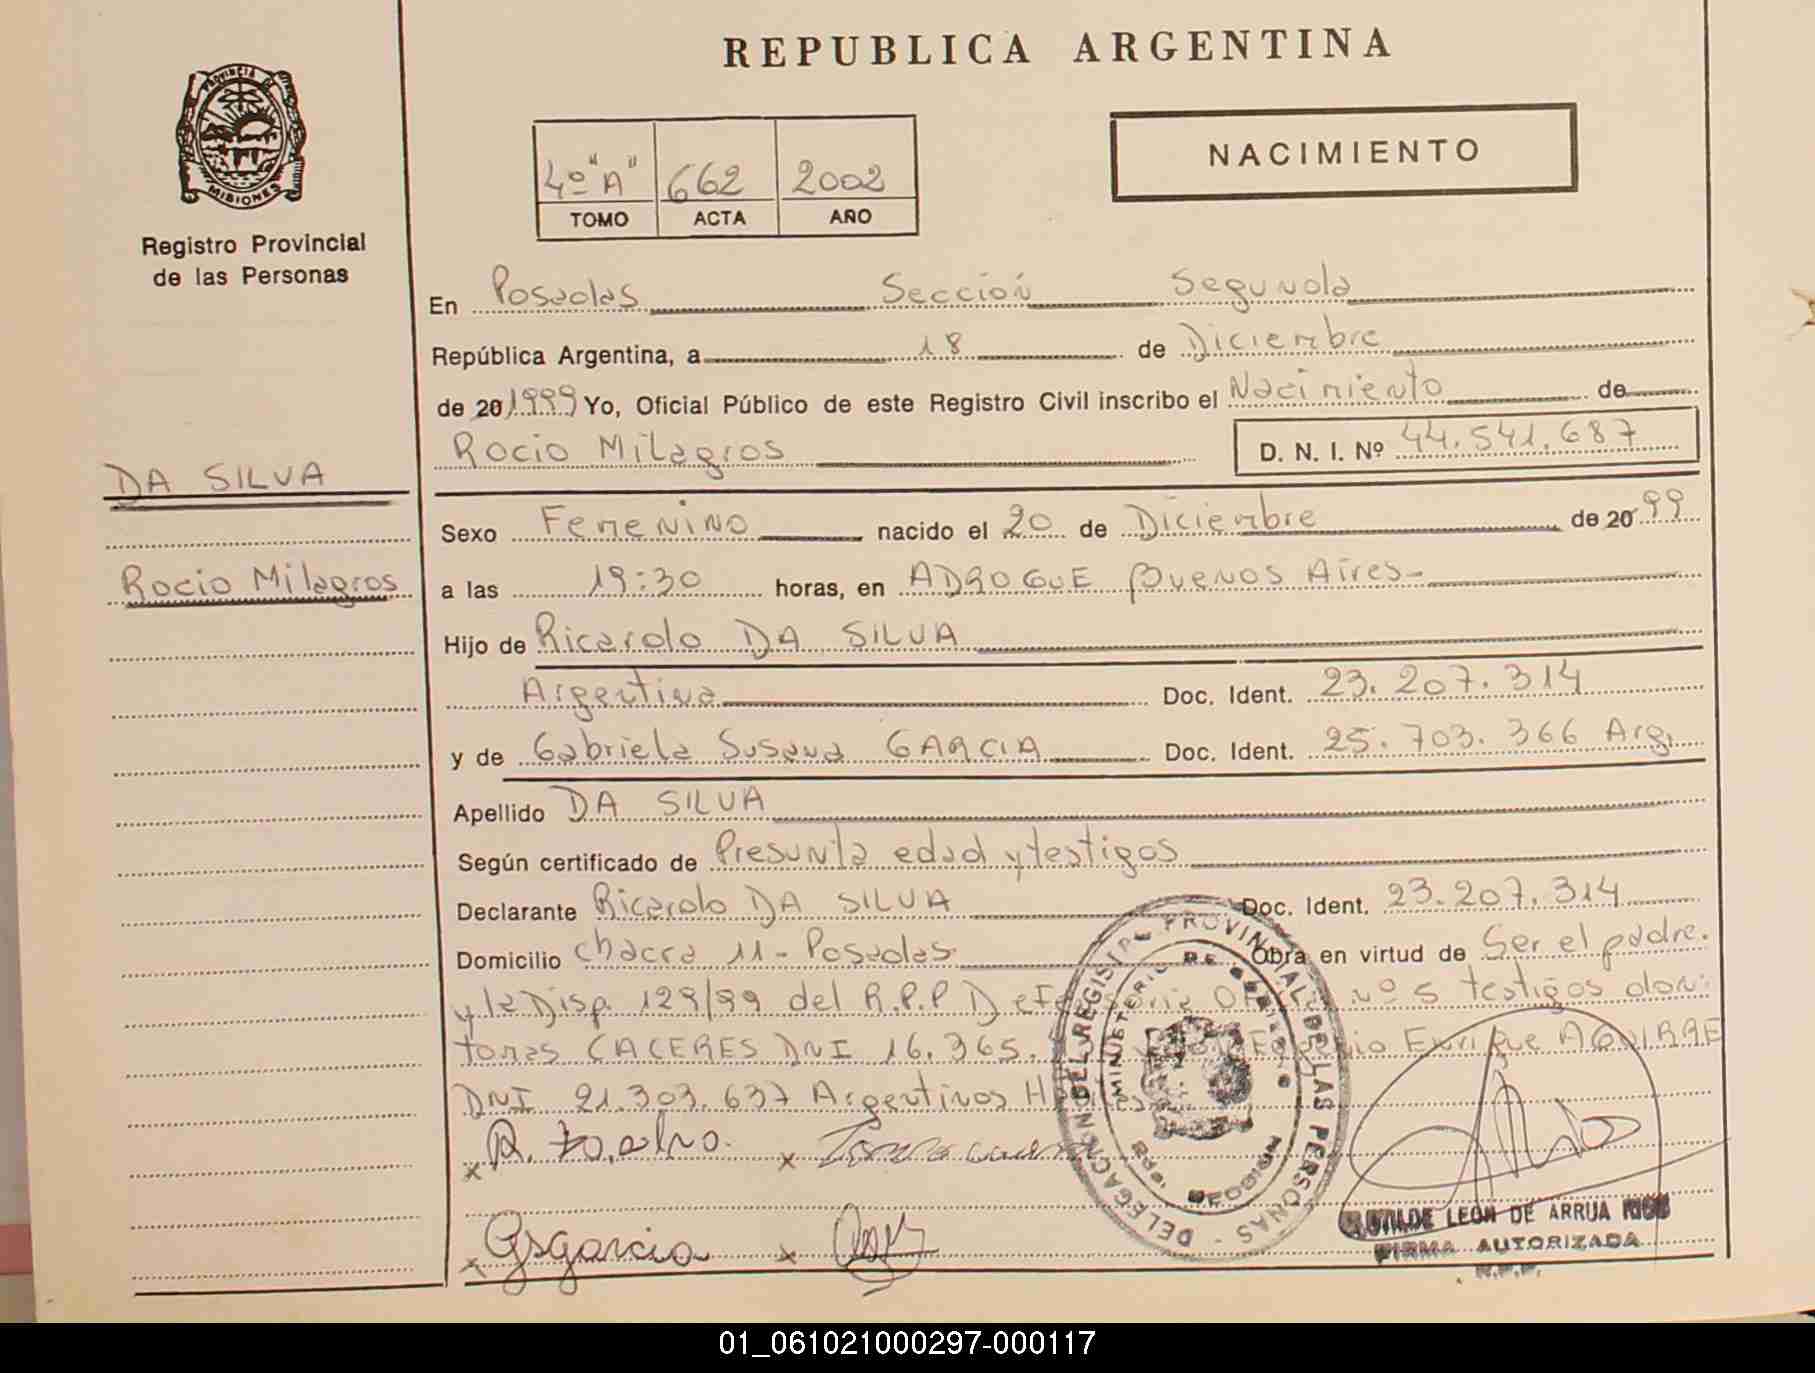 REPUBLICA ARGENTINA
PROVINCIA DE MISIONES
Registro Provincial
de las Personas
4º "A" 662 2002
TOMO ACTA AÑO
NACIMIENTO
En Posadas Sección Segunda
República Argentina, a 18 de Diciembre
de 20 1999 Yo, Oficial Público de este Registro Civil inscribo el Nacimiento de
Rocio Milagros D. N. I. Nº 44.541.687
DA SILVA
Rocio Milagros
Sexo Femenino nacido el 20 de Diciembre de 20 99
a las 19:30 horas, en ADROGUE Buenos Aires-
Hijo de Ricardo DA SILVA
Argentina Doc. Ident. 23.207.314
y de Gabriela Susana GARCIA Doc. Ident. 25.703.366 Arg.
Apellido DA SILVA
Según certificado de Presunta edad y testigos
Declarante Ricardo DA SILVA Doc. Ident. 23.207.314
Domicilio Chacra 11 - Posadas Obra en virtud de Ser el padre.
y la Disp. 129/99 del R.P.P Defensoria nº 5 testigos don:
tomas CACERES DNI 16.365. Enrique AGUIRRE
DNI 21.303.637 Argentinos
x x
x Gsgarcia x
DELEGACION DEL REGISTRO PROVINCIAL DE LAS PERSONAS
MINISTERIO DE GOBIERNO
LEON DE ARRUA
FIRMA AUTORIZADA
R.P.P.
01_061021000297-000117